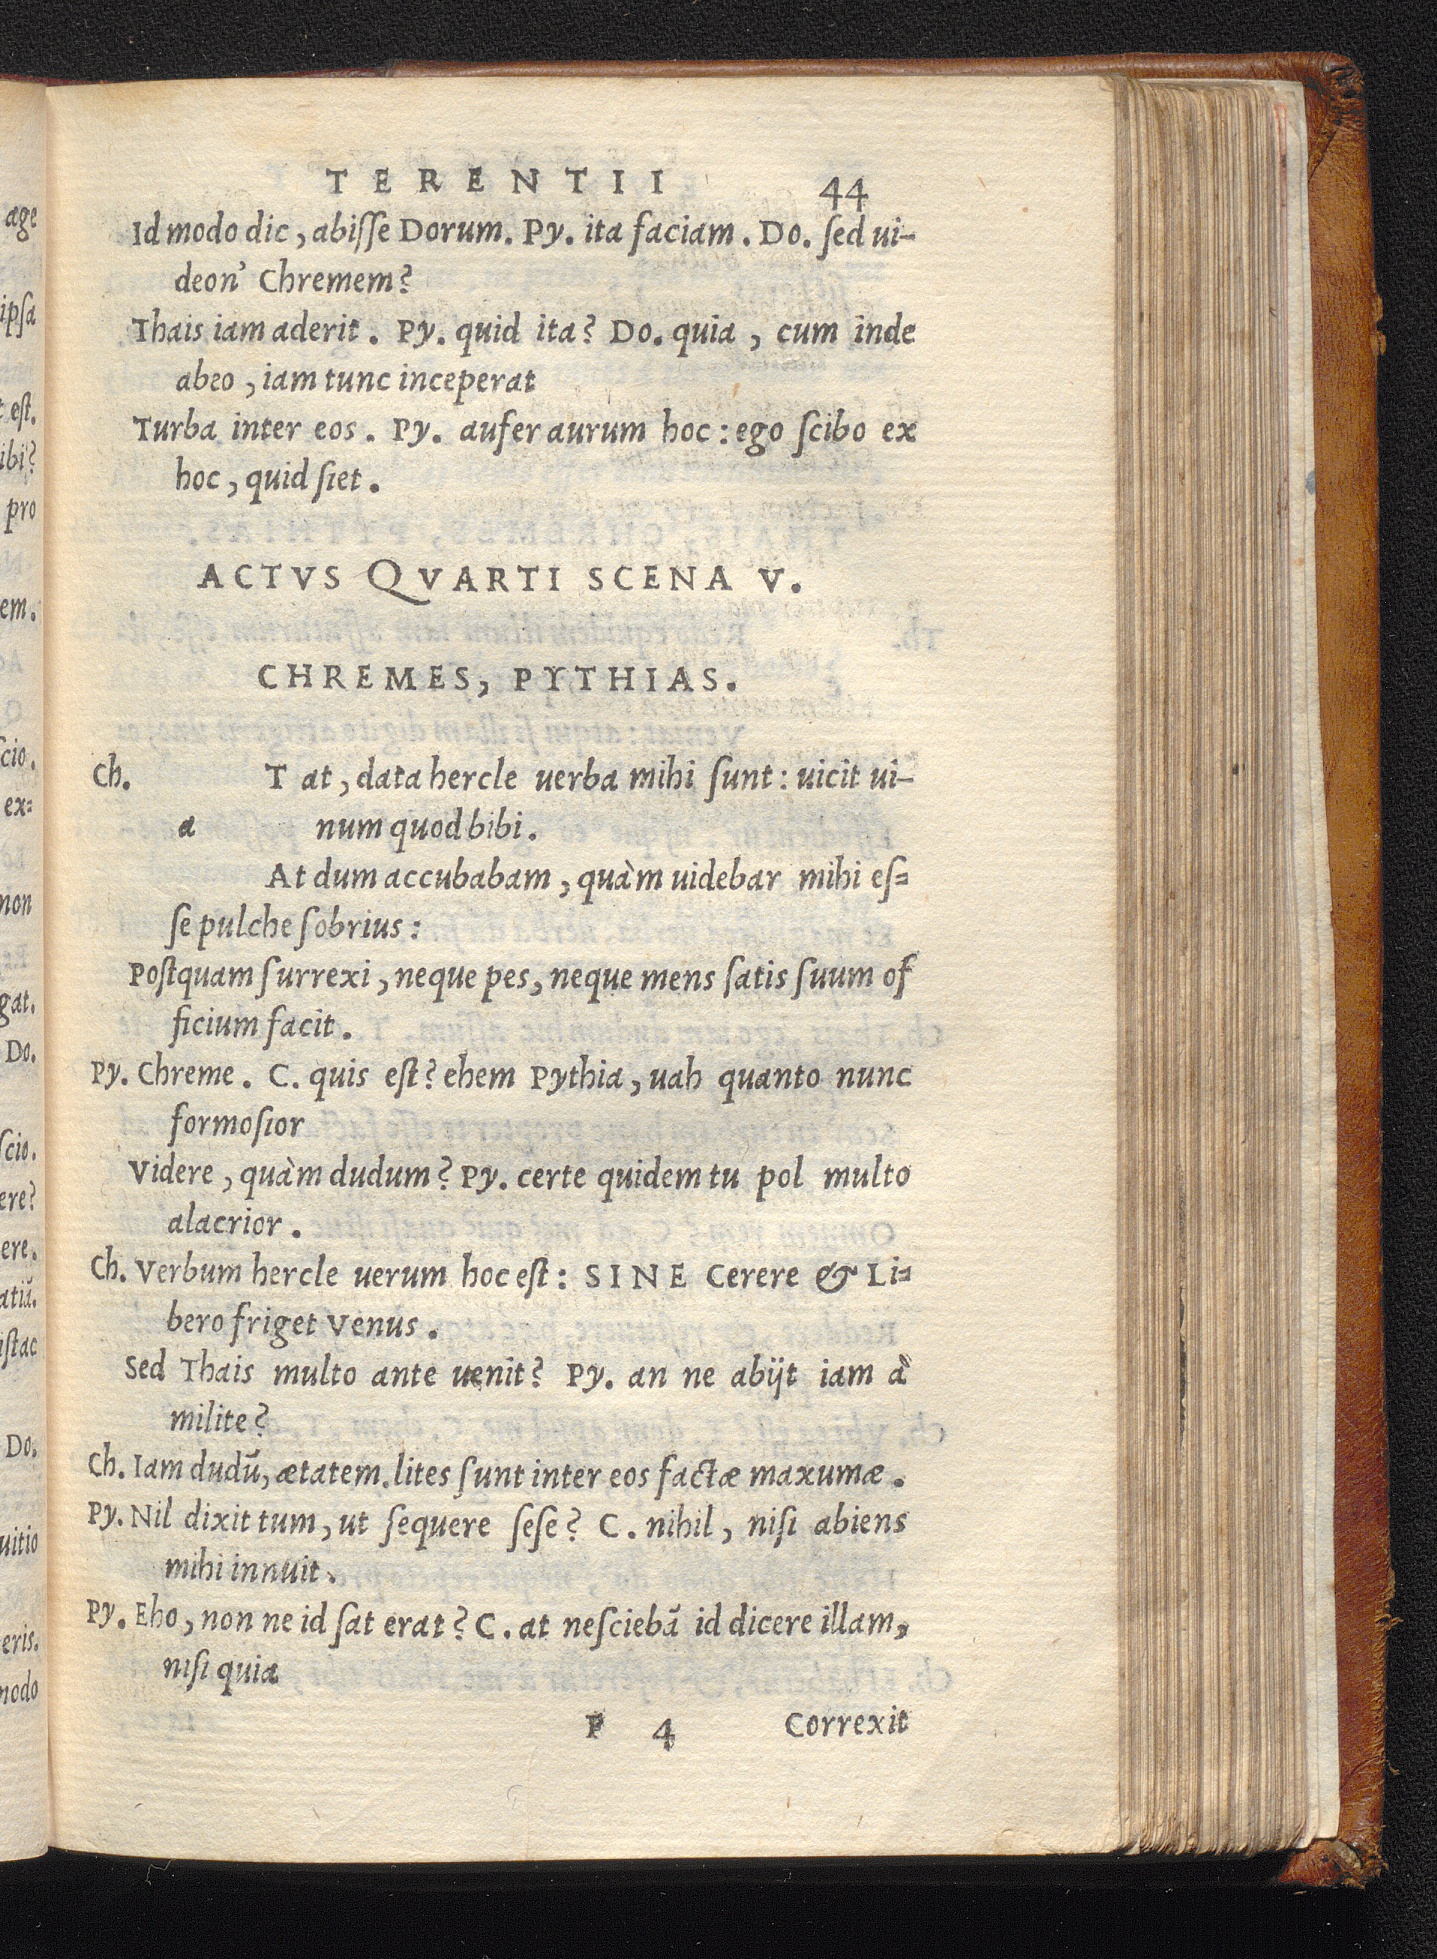 TERENTII 44
Id modo dic, abiſſe Dorum. Py. ita faciam. Do. ſed ui-
deon' Chremem?
Thais iam aderit. Py. quid ita? Do. quia, cum inde
abeo, iam tunc inceperat
Turba inter eos. Py. aufer aurum hoc: ego ſcibo ex
hoc, quid ſiet.
ACTVS QVARTI SCENA V.
CHREMES, PYTHIAS.
Ch. T at, data hercle uerba mihi ſunt: uicit ui-
a num quod bibi.
At dum accubabam, quàm uidebar mihi eſ=
ſe pulche ſobrius:
Poſtquam ſurrexi, neque pes, neque mens ſatis ſuum of
ficium facit.
Py. Chreme. C. quis eſt? ehem Pythia, uah quanto nunc
formoſior
Videre, quàm dudum? Py. certe quidem tu pol multo
alacrior.
Ch. Verbum hercle uerum hoc eſt: SINE Cerere & Li=
bero friget Venus.
Sed Thais multo ante uenit? Py. an ne abijt iam à
milite?
Ch. Iam dudū, ætatem. lites ſunt inter eos factæ maxumæ.
Py. Nil dixit tum, ut ſequere ſeſe? C. nihil, niſi abiens
mihi innuit.
Py. Eho, non ne id ſat erat? C. at neſciebā id dicere illam,
niſi quia
P 4 Correxit
age
ipſa
eſt.
ibi?
pro
em.
ſcio.
ex=
non
gat.
Do.
ſcio.
ere?
ere.
atiā.
iſtac
Do.
uitio
eris.
modo